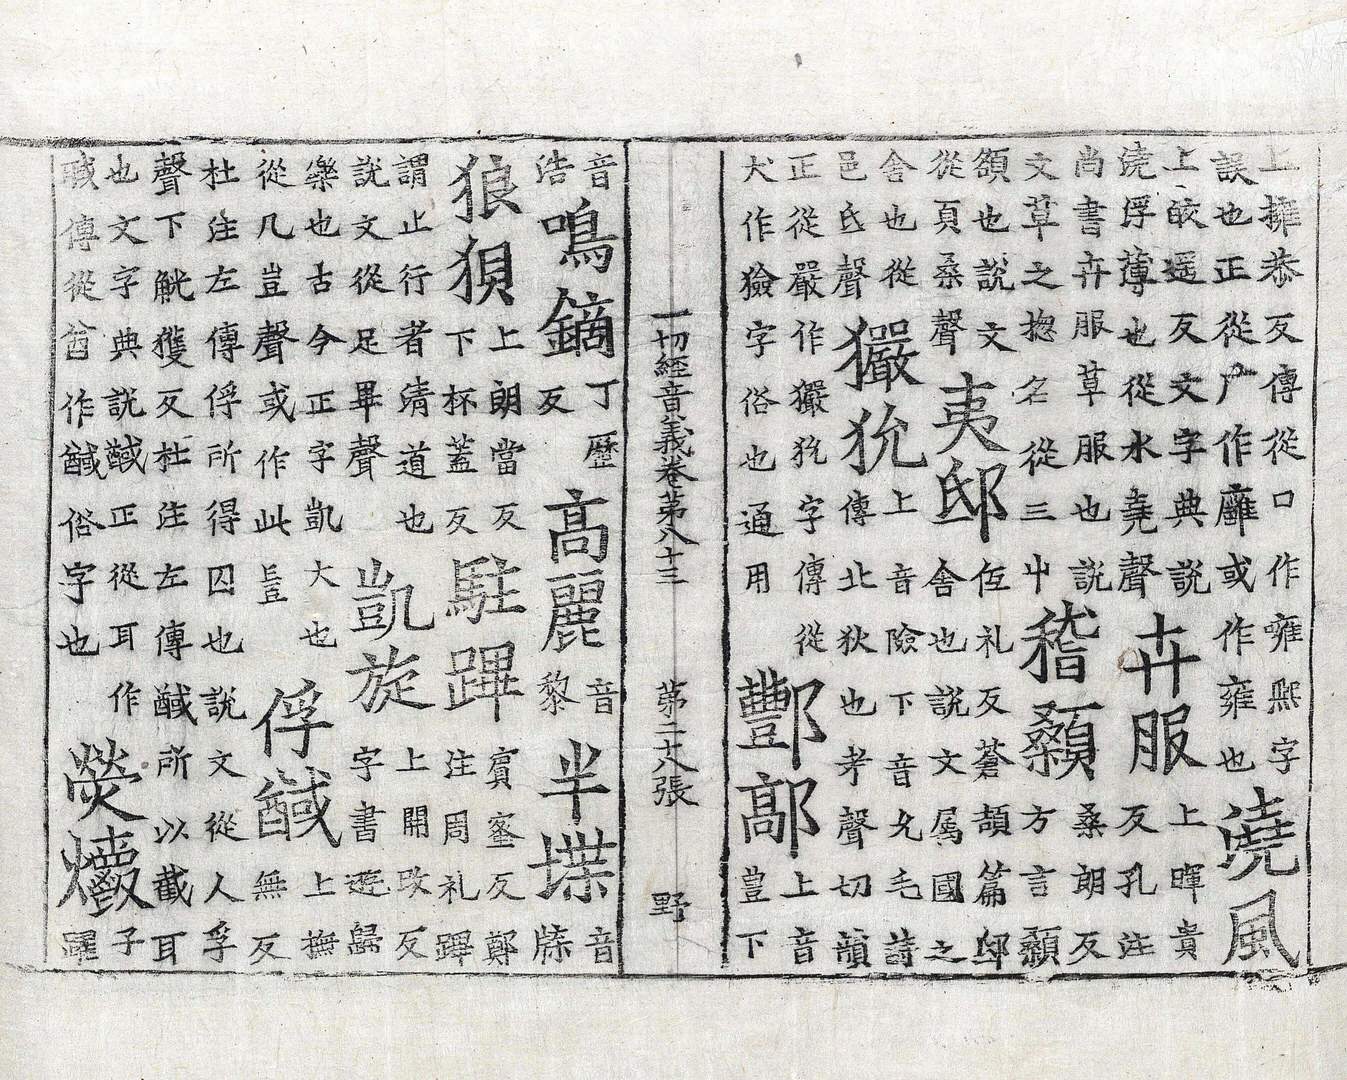 上擁恭反傳從口作雍熈字誤也正從广作廱或作雍也澆風
上皎遥反文字典說澆浮薄也從水堯聲卉服上暉貴反孔注
尚書卉服草服也說文草之揔名從三屮稽顙桑朗反方言顙
頟也說文從頁桑聲夷邸低礼反蒼頡篇邸舍也說文属國之
舍也從邑氐聲玁狁上音險下音允毛詩傳北狄也考聲切韻
正從嚴作玁狁字傳從犬作獫字俗也通用酆鄗上音豊下
一切經音義卷第八十三 第二十八張 野
音浩鳴鏑丁歷反高麗音黎半堞音牒
狼狽上朗當反下杯蓋反駐蹕賔蜜反鄭注周礼蹕
謂止行者清道也說文從足畢聲凱旋上開改反字書逰歸
樂也古今正字凱大也從几豈聲或作此豈俘馘上撫無反
杜注左傳俘所得囚也說文從人孚聲下觥獲反杜注左傳馘所以截耳
也文字典說馘正從耳作聝傳從首作馘俗字也熒爝子躍